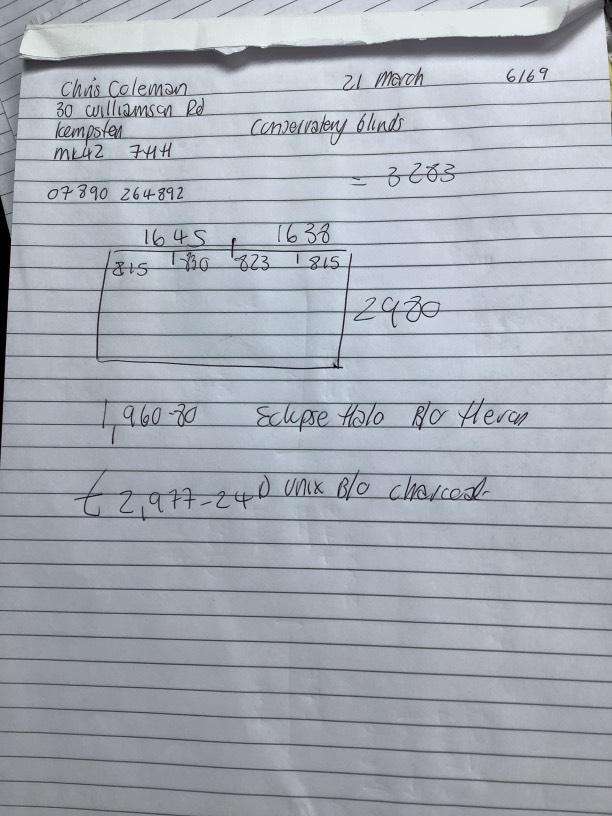 Chris Coleman 21 March 6169
30 Williamson Rd
Kempston Conservatory blinds
MK42 7HH
= 3283
07890 264892
1645 1638
815 830 823 815
2980
1,960-80 Eclipse Halo B/O Heron
£2,977-24 Unix B/O charcoal